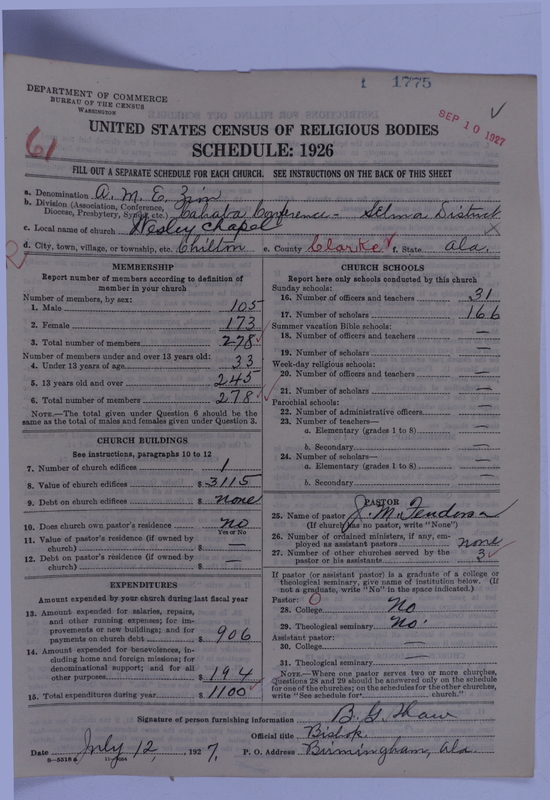 1 1775
DEPARTMENT OF COMMERCE
BUREAU OF THE CENSUS
WASHINGTON
SEP 10 1927
61
UNITED STATES CENSUS OF RELIGIOUS BODIES
SCHEDULE: 1926
FILL OUT A SEPARATE SCHEDULE FOR EACH CHURCH. SEE INSTRUCTIONS ON THE BACK OF THIS SHEET
a. Denomination A. M. E. Zion
b. Division (Association, Conference, Diocese, Presbytery, Synod, etc.) Cahaba Conference - Selma District
c. Local name of church Wesley Chapel
d. City, town, village, or township, etc. Chilton e. County Clarke f. State Ala.
MEMBERSHIP
Report number of members according to definition of
member in your church
Number of members, by sex:
1. Male 105
2. Female 173
3. Total number of members 278
Number of members under and over 13 years old:
4. Under 13 years of age 33
5. 13 years old and over 245
6. Total number of members 278
NOTE.—The total given under Question 6 should be
same as the total of males and females given under Question 3.
CHURCH BUILDINGS
See instructions, paragraphs 10 to 12
7. Number of church edifices 1
8. Value of church edifices $ 3115
9. Debt on church edifices $ none
10. Does church own pastor's residence no
Yes or No
11. Value of pastor's residence (if owned by
church) $ —
12. Debt on pastor's residence (if owned by
church) $ —
EXPENDITURES
Amount expended by your church during last fiscal year
13. Amount expended for salaries, repairs,
and other running expenses; for im-
provements or new buildings; and for
payments on church debt $ 906
14. Amount expended for benevolences, in-
cluding home and foreign missions; for
denominational support; and for all
other purposes $ 194
15. Total expenditures during year $ 1100
CHURCH SCHOOLS
Report here only schools conducted by this church
Sunday schools:
16. Number of officers and teachers 31
17. Number of scholars 166
Summer vacation Bible schools:
18. Number of officers and teachers —
19. Number of scholars —
Week-day religious schools:
20. Number of officers and teachers —
21. Number of scholars —
Parochial schools:
22. Number of administrative officers —
23. Number of teachers—
a. Elementary (grades 1 to 8) —
b. Secondary —
24. Number of scholars—
a. Elementary (grades 1 to 8) —
b. Secondary —
PASTOR
25. Name of pastor J. M.
(If church has no pastor, write "None")
26. Number of ordained ministers, if any, em-
ployed as assistant pastors none
27. Number of other churches served by the
pastor or his assistants 3
If pastor (or assistant pastor) is a graduate of a college or
theological seminary, give name of institution below. (If
not a graduate, write "No" in the space indicated.)
Pastor:
28. College No
29. Theological seminary No
Assistant pastor:
30. College —
31. Theological seminary —
NOTE.—Where one pastor serves two or more churches,
Questions 28 and 29 should be answered only on the schedule
for one of the churches; on the schedules for the other churches,
write "See schedule for church."
Signature of person furnishing information B. G. Shaw
Official title Bishop
Date July 12, 1927. P. O. Address Birmingham, Ala.
8—5518a